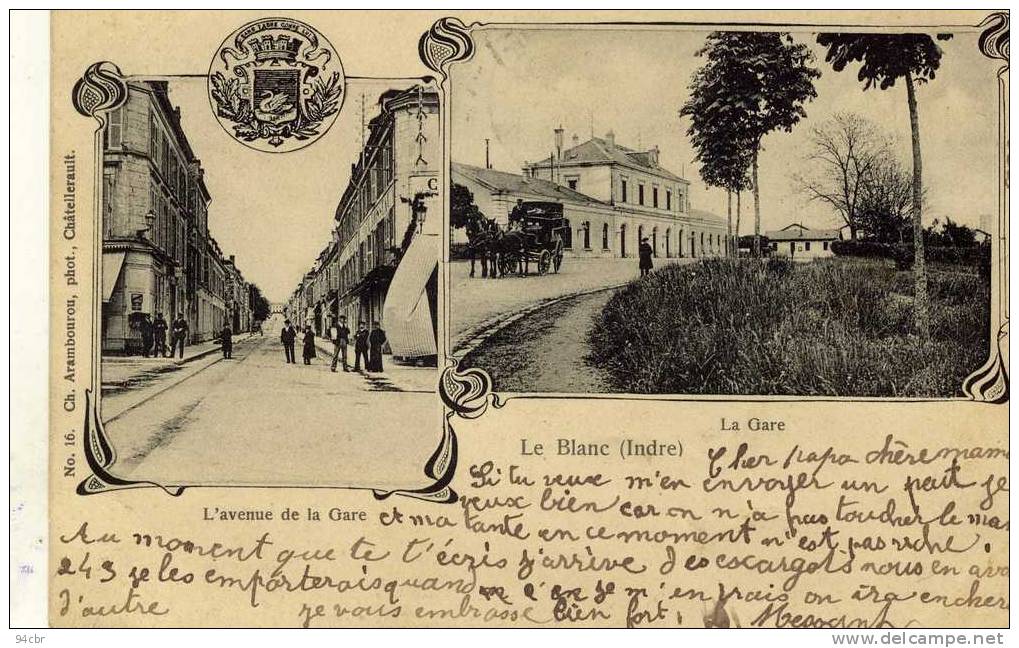 No. 16. Ch. Arambourou, phot., Châtellerault.
La Gare
Le Blanc (Indre)
L'avenue de la Gare
Cher papa chère mam
Si tu veux m'en envoyer un peut je
veux bien car on n'a pas toucher le ma
et ma tante en ce moment n'est pas riche.
Au moment que te t'écris j'arrive des escargots nous en avo
243 je les emporterais quand je m'en irais on ira encher
d'autre je vous embrasse bien fort.
94cbr
www.delcampe.net